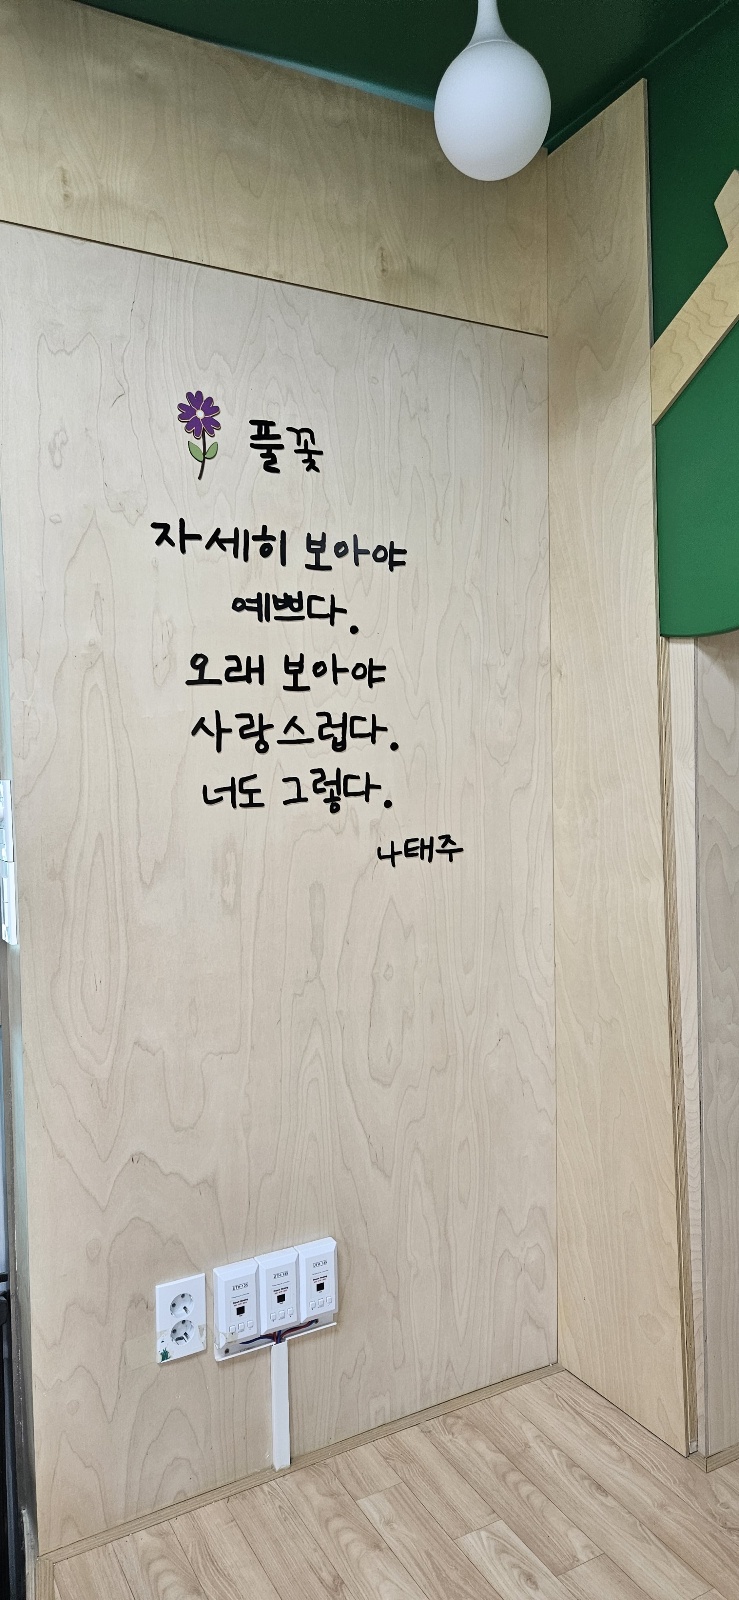 풀꽃
자세히 보아야
예쁘다.
오래 보아야
사랑스럽다.
너도 그렇다.
나태주